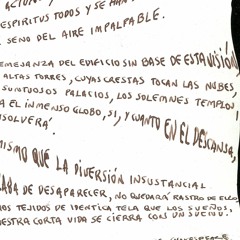 ESPIRITUS TODOS Y SE HAN
SENO DEL AIRE IMPALPABLE.
EMEJANZA DEL EDIFICIO SIN BASE DE ESTA VISIÓN
ALTAS TORRES, CUYAS CRESTAS TOCAN LAS NUBES,
SUNTUOSOS PALACIOS, LOS SOLEMNES TEMPLO
A EL INMENSO GLOBO, SI, Y CUANTO EN EL DESCANSA,
SOLVERÁ.
MISMO QUE LA DIVERSIÓN INSUSTANCIAL
ABA DE DESAPARECER, NO QUEDARÁ RASTRO DE ELLO
OS TEJIDOS DE IDENTICA TELA QUE LOS SUEÑOS,
ESTRA CORTA VIDA SE CIERRA CON UN SUEÑO.